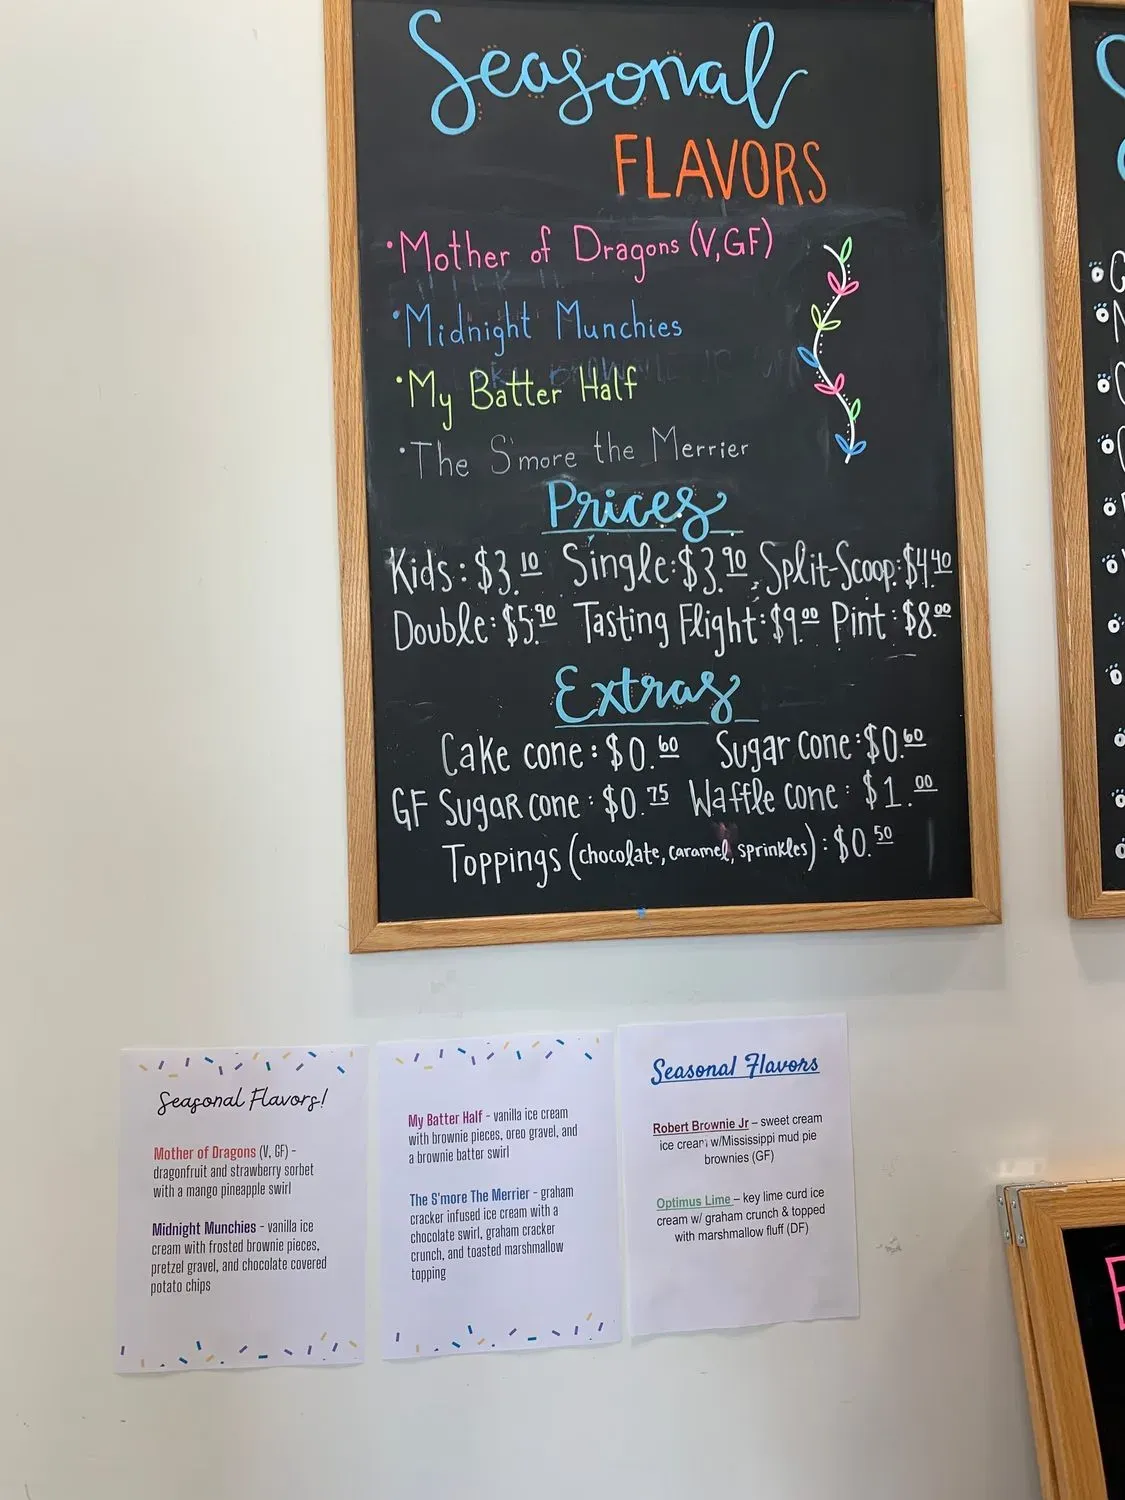 Seasonal
FLAVORS
• Mother of Dragons (V,GF)
• Midnight Munchies
• My Batter Half
• The S'more the Merrier
Prices
Kids: $3.10 Single: $3.90 Split-Scoop: $4.40
Double: $5.90 Tasting Flight: $9.00 Pint: $8.00
Extras
Cake cone: $0.60 Sugar cone: $0.60
GF Sugar cone: $0.75 Waffle cone: $1.00
Toppings (chocolate, caramel, sprinkles): $0.50
Seasonal Flavors!
Mother of Dragons (V, GF) -
dragonfruit and strawberry sorbet
with a mango pineapple swirl
Midnight Munchies - vanilla ice
cream with frosted brownie pieces,
pretzel gravel, and chocolate covered
potato chips
My Batter Half - vanilla ice cream
with brownie pieces, oreo gravel, and
a brownie batter swirl
The S'more The Merrier - graham
cracker infused ice cream with a
chocolate swirl, graham cracker
crunch, and toasted marshmallow
topping
Seasonal Flavors
Robert Brownie Jr – sweet cream
ice cream w/Mississippi mud pie
brownies (GF)
Optimus Lime – key lime curd ice
cream w/ graham crunch & topped
with marshmallow fluff (DF)